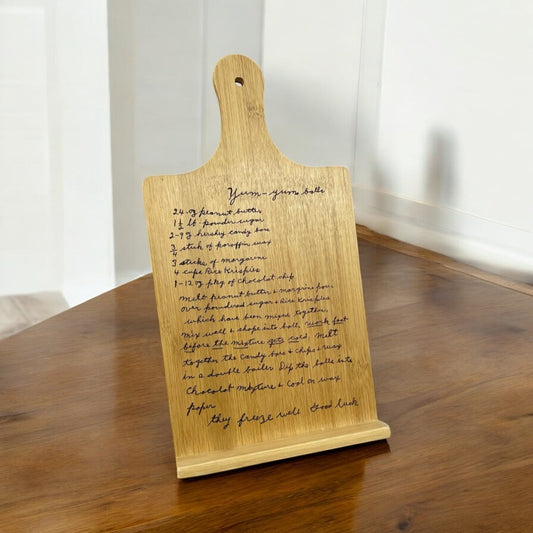 Yum-yum balls
24 oz peanut butter
1 1/2 lb. powder sugar
2-9 oz hershey candy bars
3/4 stick of paroffin wax
3 sticks of margarine
4 cups Rice Krispies
1-12 oz pkg of chocolat chip
Melt peanut butter & margrine pour
over powdered sugar & Rice Krispies
which have been mixed together,
mix well & shape into balls, work fast
before the mixture gets cold. Melt
together the candy bars & chips & wax
in a double boiler. Dip the balls into
Chocolat mixture & Cool on wax
paper
they freeze well Good luck